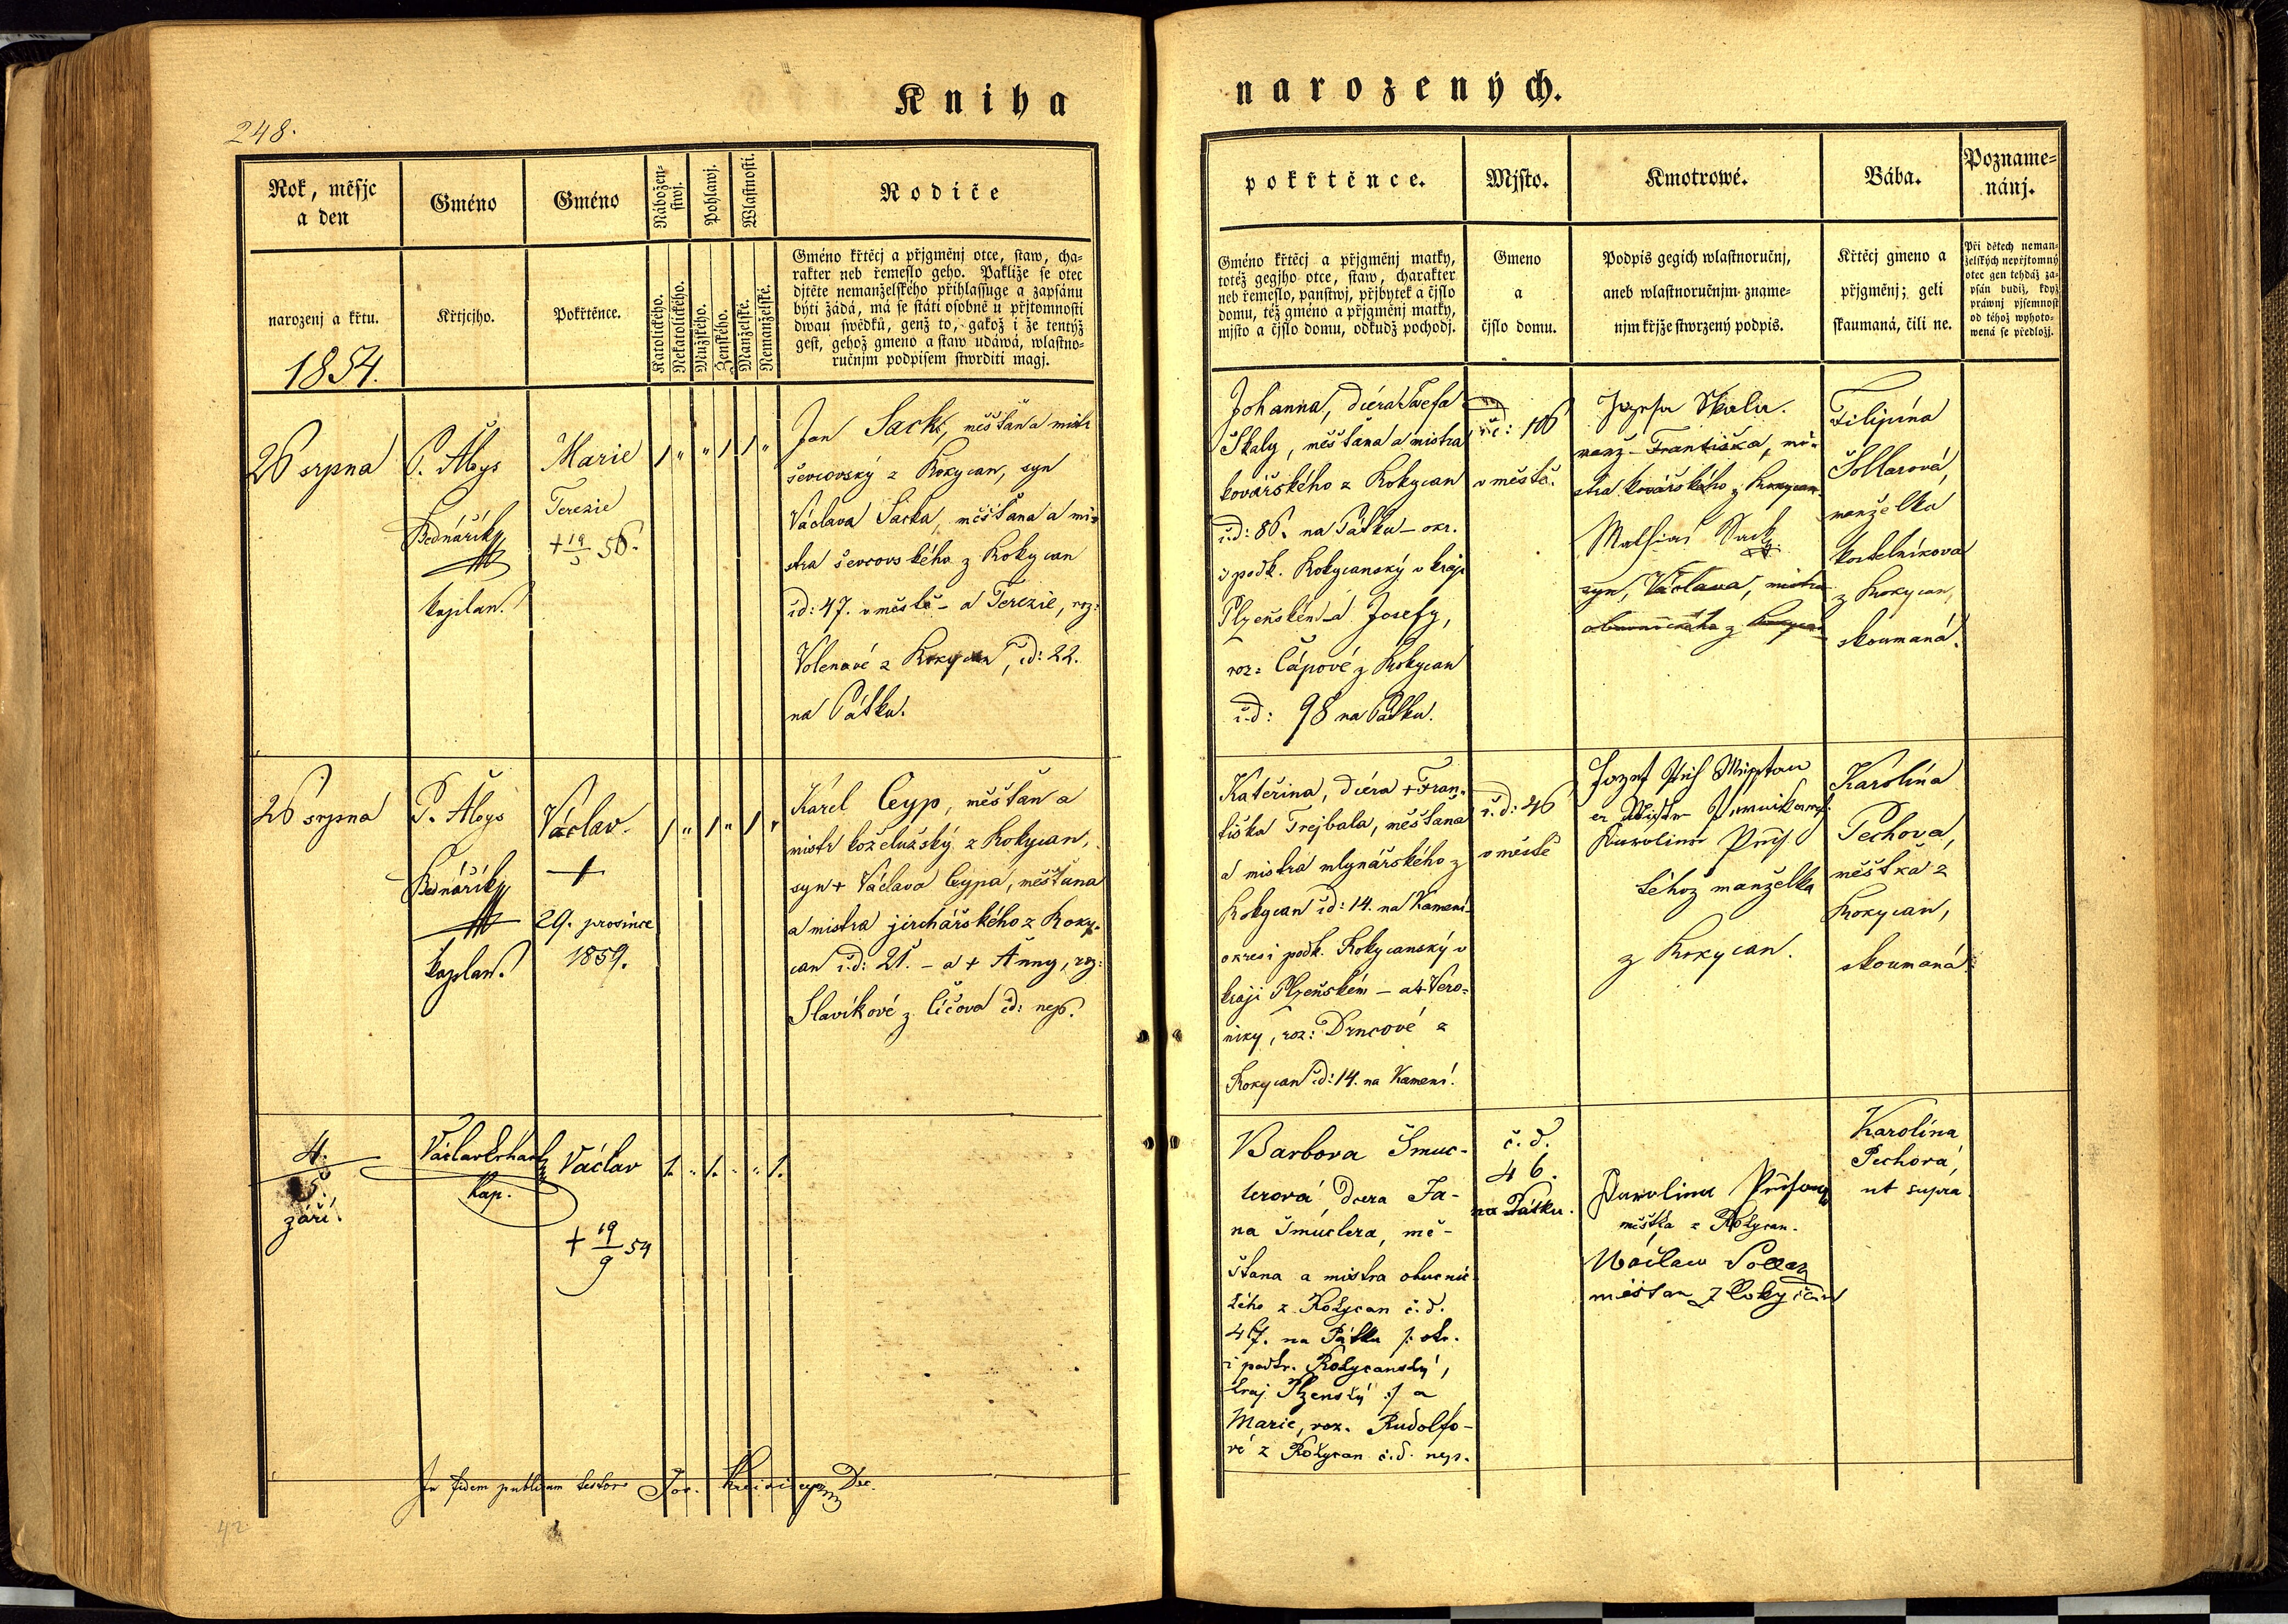 Kniha
248.
Rok, měsjc
a den
narozenj a křtu.
1854.
Gméno
Křtjcjho.
Gméno
Pokřtěnce.
Nábožen-
stwj.
Katolického.
Nekatolického.
Pohlawj.
Mužského.
Ženského.
Wlastnosti.
Manželské.
Nemanželské.
Rodiče
Gméno křtěcj a přjgměnj otce, staw, cha-
rakter neb řemeslo geho. Pakliže se otec
djtěte nemanželského přihlassuge a zapsánu
býti žádá, má se státi osobně u přjtomnosti
dwau swědků, genž to, gakož i že tentýž
gest, gehož gmeno a staw udáwá, wlastno-
ručnjm podpisem stwrditi magj.
26 srpna
P. Aloys
Bednářík
kaplan.
Marie
Terezie
+ 19 56.
Jan Sack, měšťan a mistr
ševcovský z Rokycan, syn
Václava Sacka, měšťana a mi-
stra ševcovského z Rokycan
čd: 47. v městě - a Terezie, roz:
Volenové z Rokycan, čd: 22.
na Pátku.
26 srpna
P. Aloys
Bednářík
kaplan.
Václav.
+
29. prosince
1859.
Karel Cyp, měšťan a
mistr koželužský z Rokycan,
syn + Václava Cypa, měšťana
a mistra jirchářského z Roky-
can čd: 21. - a + Anny, roz:
Slavíkové z Líčova čd: nep.
4.
5.
září.
Václav Erhart
kap.
Václav
+ 19/9 54
In fidem publicam testor Jos. Dec.
42
narozených.
pokřtěnce.
Gméno křtěcj a přjgměnj matky,
totéž gegjho otce, staw, charakter
neb řemeslo, panstwj, přjbytek a čjslo
domu, též gméno a přjgměnj matky,
mjsto a čjslo domu, odkudž pochodj.
Mjsto.
Gmeno
a
čjslo domu.
Kmotrowé.
Podpis gegich wlastnoručnj,
aneb wlastnoručnjm zname-
njm křjže stwrzený podpis.
Bába.
Křtěcj gmeno a
přjgměnj; geli
skaumaná, čili ne.
Pozname-
nánj.
Při dětech neman-
želských nepřjtomný
otec gen tehdáž za-
psán budiž, když
práwnj pjsemnost
od téhož wyhoto-
wená se předložj.
Johanna, dcera Josefa
Skaly, měšťana a mistra
kovářského z Rokycan
čd: 86. na Pátku - okr.
i podk. Rokycanský v kraji
Plzeňském - a Josefy,
roz: Čápové z Rokycan
čd: 98 na Pátku.
čč: 106
v městě.
Jozefa Skala.
manž- Františka, mi-
stra kovářského z Rokycan
Mathias Sack
syn, Václava, mistra
obuvnického z Rokycan
Filipína
Sollarová,
manželka
kostelníkova
z Rokycan,
skoumaná.
Kateřina, dcera + Fran-
tiška Trejbala, měšťana
a mistra mlynářského z
Rokycan čd: 14. na Kamení-
okres i podk. Rokycanský v
kraji Plzeňském - a + Vero-
niky, roz: Drncové z
Rokycan čd: 14. na Kamení.
č.d: 46
v městě
Jozef
Karolina
téhož manželka
z Rokycan.
Karolína
Pechova,
měštka z
Rokycan,
skoumaná.
Barbora Šmuc-
lerová dcera Ja-
na Šmuclera, mě-
šťana a mistra obuvnic-
kého z Rokycan č.d.
47. na Pátku /: okr.
i podkr. Rokycanský,
kraj Plzenský :/ a
Marie, roz. Rudolfo-
vé z Rokycan č.d. nep.
č.d.
46.
na Pátku.
Karolina
měštka z Rokycan.
Wáclaw Sollar
měšťan z Rokycan
Karolína
Pechová,
ut supra.